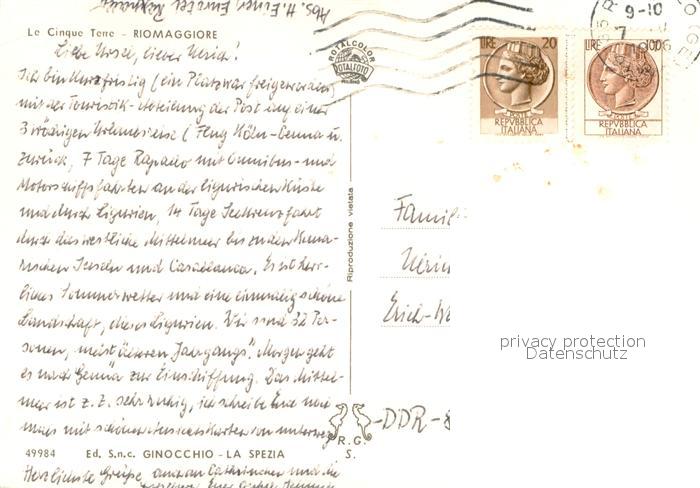 Abs. H. Einer, Eurotel Rapallo
Le Cinque Terre - RIOMAGGIORE
Liebe Ursel, lieber Ulrich!
Ich bin kurzfristig (ein Platz war freigeworden)
mit der Touristik-Abteilung der Post auf einer
3 wöchigen Urlaubsreise (Flug Köln-Genua u.
zurück, 7 Tage Rapallo mit Omnibus- und
Motorschiffsfahrten an der ligurischen Küste
und durch Ligurien, 14 Tage Seekreuzfahrt
durch das westliche Mittelmeer bis zu den Kana-
rischen Inseln und Casablanca. Es ist herr-
liches Sommerwetter und eine einmalig schöne
Landschaft, dieses Ligurien. Wir sind 32 Per-
sonen, meist älteren Jahrgangs. Morgen geht
es nach Genua zur Einschiffung. Das Mittel-
meer ist z. Z. sehr ruhig, ich schreibe Euch noch
mals mit schönen Ansichtskarten von unterwegs
49984 Ed. S.n.c. GINOCCHIO - LA SPEZIA
Herzlichste Grüße, auch an Cathrinchen und die
ROTALCOLOR
ROTALFOTO
MILANO
Riproduzione vietata
R. G.
S.
LIRE 20
POSTE
REPVBBLICA
ITALIANA
LIRE 100
POSTE
REPVBBLICA
ITALIANA
9-10
Famili
Ulrich
Erich-We
DDR-8
privacy protection
Datenschutz